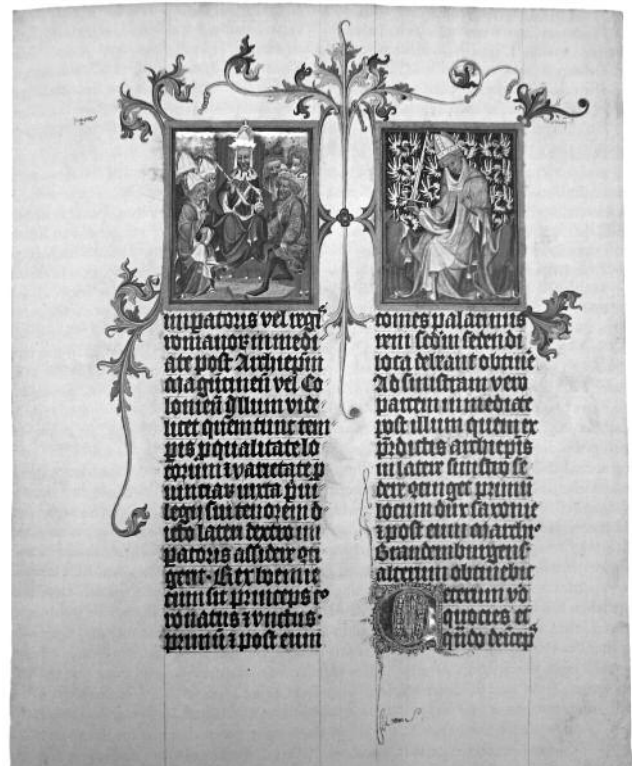 imꝑatoris vel regis
romanoꝝ in medi
ate post Archiepm̄
Magūtineñ vel Co
lonieñ Illum vide
licet quem tunc tem
pis ꝓ qualitate lo
corum ⁊ varietate ꝓ
uinciaꝝ iuxta pͥui
legij sui tenorem di
cto lateri dextro im
ꝑatoris assidere cōti
gerit · Rex boemie
cum sit princeps co
ronatus ⁊ vnctus ·
primū ⁊ post eum
comes palatinus
reni scdm̄ sedendi
loca debeant obtinē
Ad sinistram vero
partem immediate
post illum quem ex
p̄dictis archiepis
in latere sinistro se
dere ↄtinget primū
locum dux saxonie
⁊ post eum Marchi
Brandemburgenß
alterum obtinebit
Ceterum vo
quocies et
qn̄do deincep̄